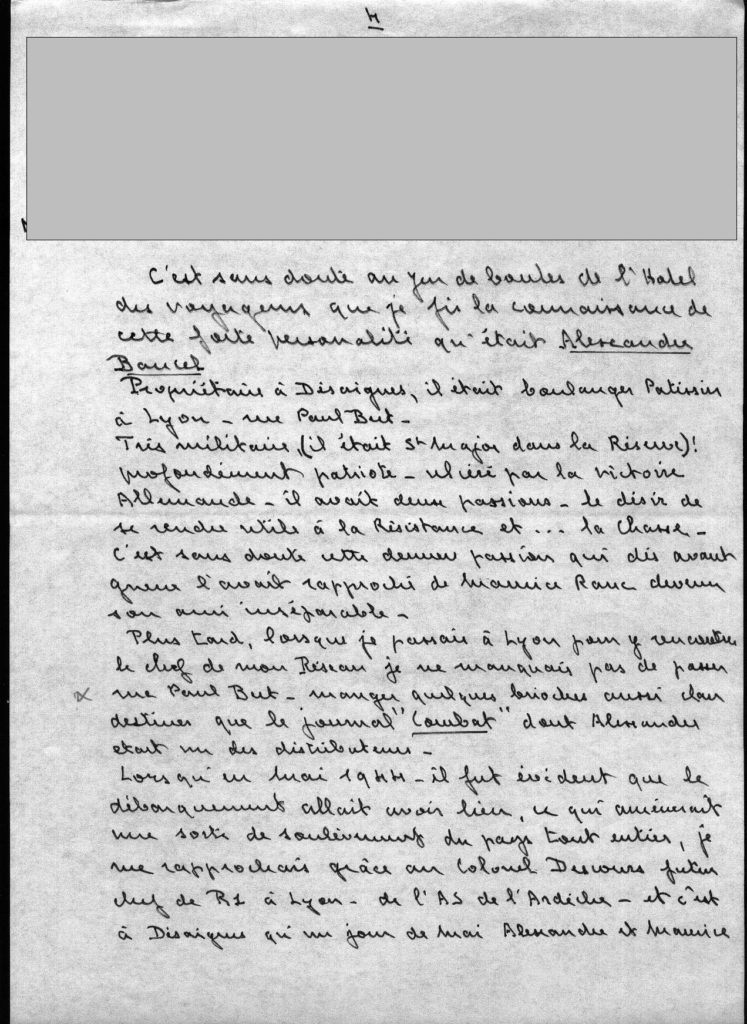 4
C'est sans doute au jeu de boules de l'Hotel
des voyageurs que je fis la connaissance de
cette forte personalité qu'était Alexandre
Bancel
Propriétaire à Désaignes, il était boulanger Patissier
à Lyon - rue Paul Bert -
Très militaire, (il était St Major dans la Réserve)!
profondément patriote - ulcéré par la victoire
Allemande - il avait deux passions - le désir de
se rendre utile à la Résistance et ... la Chasse -
C'est sans doute cette derner passion qui dès avant
guerre l'avait rapproché de Maurice Ranc devenu
son ami inséparable -
Plus tard, lorsque je passais à Lyon pour y rencontrer
le chef de mon Réseau je ne manquais pas de passer
rue Paul Bert - manger quelques brioches aussi clan
destines que le journal "Combat" dont Alexandre
etait un des distributeurs -
Lorsqu'en Mai 1944 - il fut évident que le
débarquement allait avoir lieu, ce qui amènerait
une sorte de soulèvement du pays tout entier, je
me rapprochais grâce au Colonel Descours futur
chef de R1 à Lyon - de l'AS de l'Ardèche - et c'est
à Désaignes qu'un jour de Mai Alexandre et Maurice